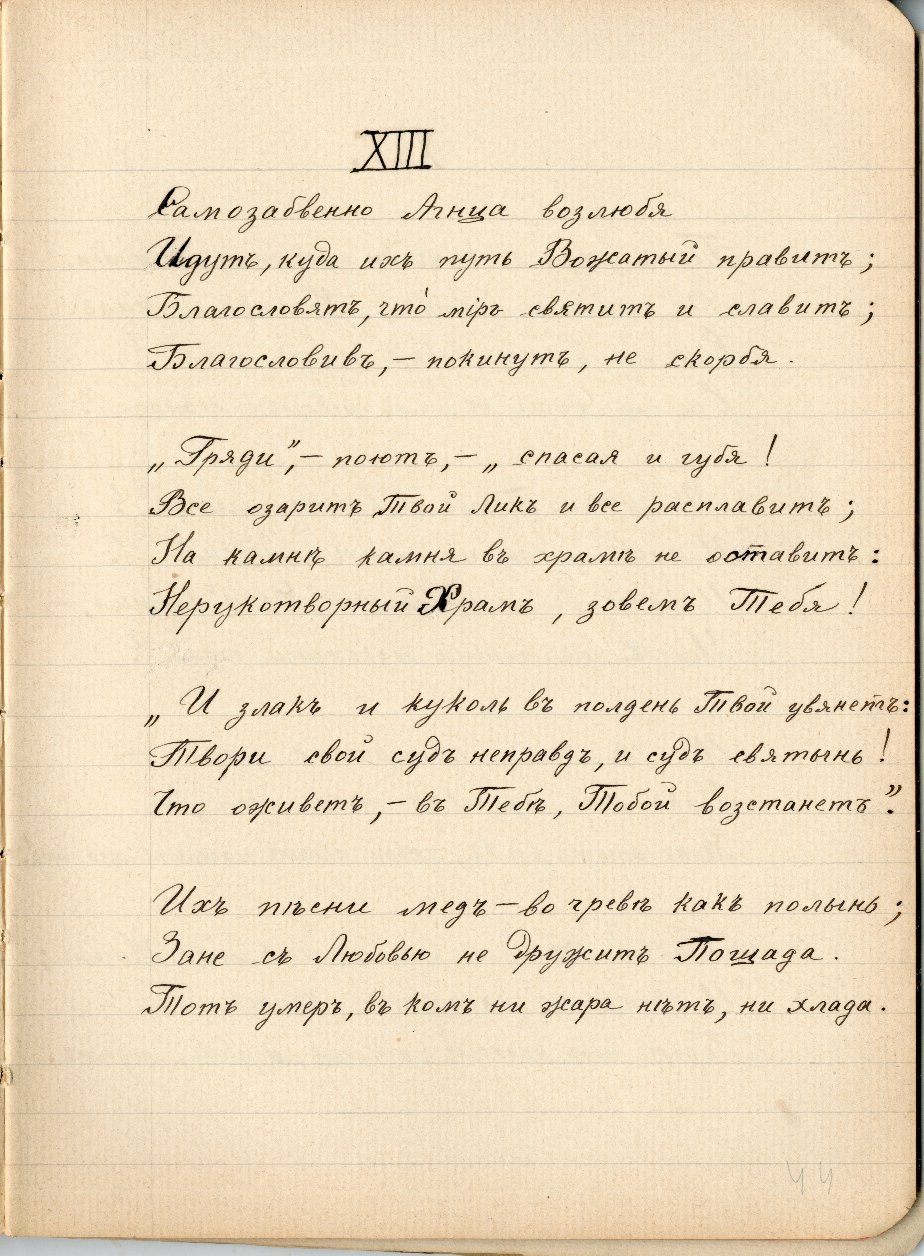 XIII
Самозабвенно Агнца возлюбя
Идутъ, куда ихъ путь Вожатый правитъ;
Благословятъ, что́ мiръ святитъ и славитъ;
Благословивъ,— покинутъ, не скорбя.
„Гряди”,— поютъ,— „спасая и губя!
Все озаритъ Твой Ликъ и все расплавитъ;
На камнѣ камня въ храмѣ не оставитъ:
Нерукотворный Храмъ, зовемъ Тебя!
„И злакъ и куколь въ полдень Твой увянетъ:
Твори свой судъ неправдъ, и судъ святынь!
Что оживетъ,— въ Тебѣ, Тобой возстанетъ”.
Ихъ пѣсни медъ — во чревѣ какъ полынь;
Зане съ Любовью не дружитъ Пощада.
Тотъ умеръ, въ комъ ни жара нѣтъ, ни хлада.
44